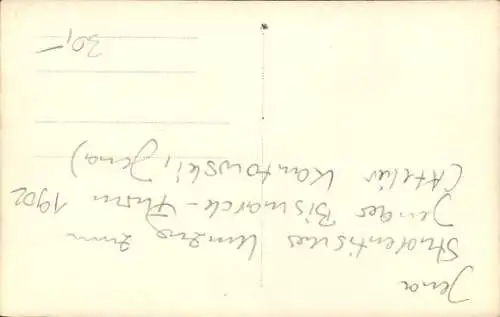 Jena
Studentischer Umzug zum
Jenaer Bismarck-Turm 1902
(Atelier Kantowski, Jena)
30,-